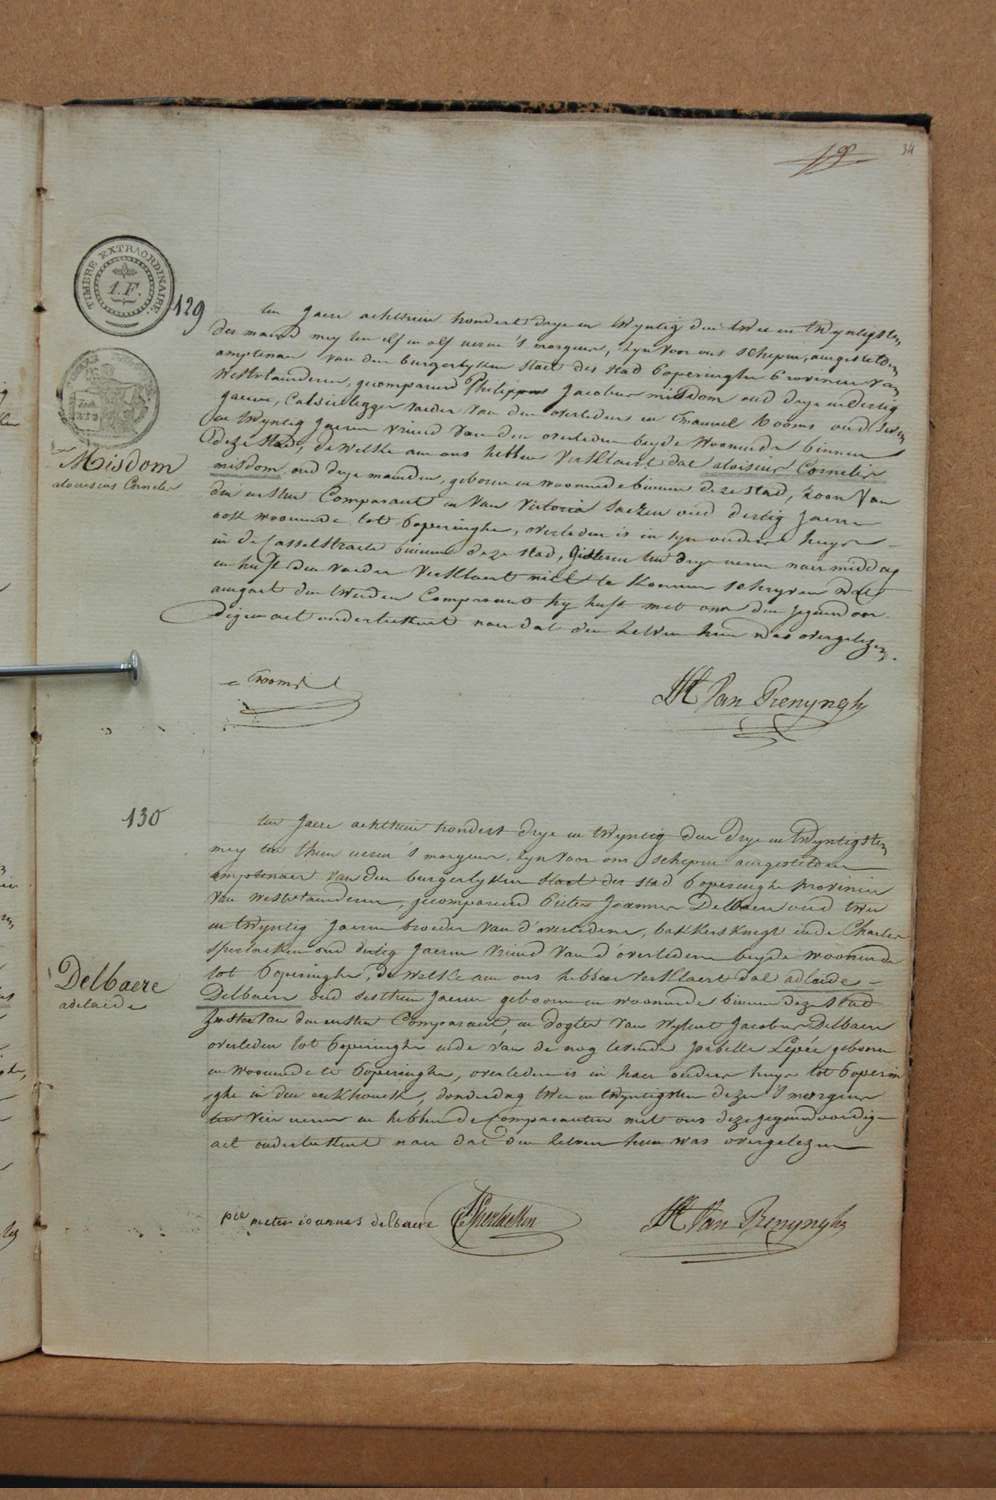 34
19
TIMBRE EXTRAORDINAIRE.
1.F.
129
ten Jaere achthien hondert drye en twyntig den twee en twyntigsten
der maend mey ten elf en alf ueren 's morgens, zyn voor ons schepen, aengestelden
amptenaer van den burgerlyken staet der stad Poperinghe Provincie van
Westvlaenderen, gecompareerd Philippus Jacobus misdom oud drye en dertig
jaeren, Calsielegger vaeder van den overledenen en Emanuel Cooms oud seven
en twyntig Jaeren vriend van den overleden beyde woonende binnen
deze stad, de welke aen ons hebben verklaert dat aloisius Cornelis
Misdom
misdom oud drye maenden, geboren en woonende binnen deze stad, zoon van
alouisius Cornelis
den eersten Comparant en van Victoria Saesen oud dertig jaeren
ook woonende tot Poperinghe, overleden is in syn ouders huys
in de Casselstraete binnen deze stad, gisteren ten drye ueren naer middag
en heeft den vaeder verklaert niet te konnen schryven
aengaet den tweeden Comparant hy heeft met ons den jegenwoor
digen act onderteekent naer dat den zelven hun was overgelezen.
Cooms
Van Renynghe
130
ten Jaere achthien hondert drye en twyntig den drye en twyntigsten
mey ten thien ueren 's morgens, zyn voor ons schepen aengestelden
amptenaer van den burgerlyken staet der stad Poperinghe provincie
van Westvlaenderen, gecompareerd Pieter Joannes Delbaere oud twee
en twyntig Jaeren broeder van d'overledene, bakkersknegt en de Charles
oud dertig Jaeren vriend van d'overledene beyde woonende
tot Poperinghe, de welke aen ons hebben verklaert dat adelaide
Delbaere
Delbaere oud sesthien Jaeren geboren en woonende binnen deze stad
adelaide
zuster van den eersten Comparant, en dogter van wylent Jacobus Delbaere
overleden tot Poperinghe ende van de nog levende Isabelle Lepée geboren
en woonende te Poperinghe, overleden is in haer ouders huys tot Poperin
ghe in den eekhoutk, donderdag twee en twyntigsten dezer 's morgens
ten vier ueren en hebben de Comparanten met ons deze jegenwoordig
act onderteekent naer dat den zelven hun was overgelezen
pieter ioannes delbaere
Van Renynghe